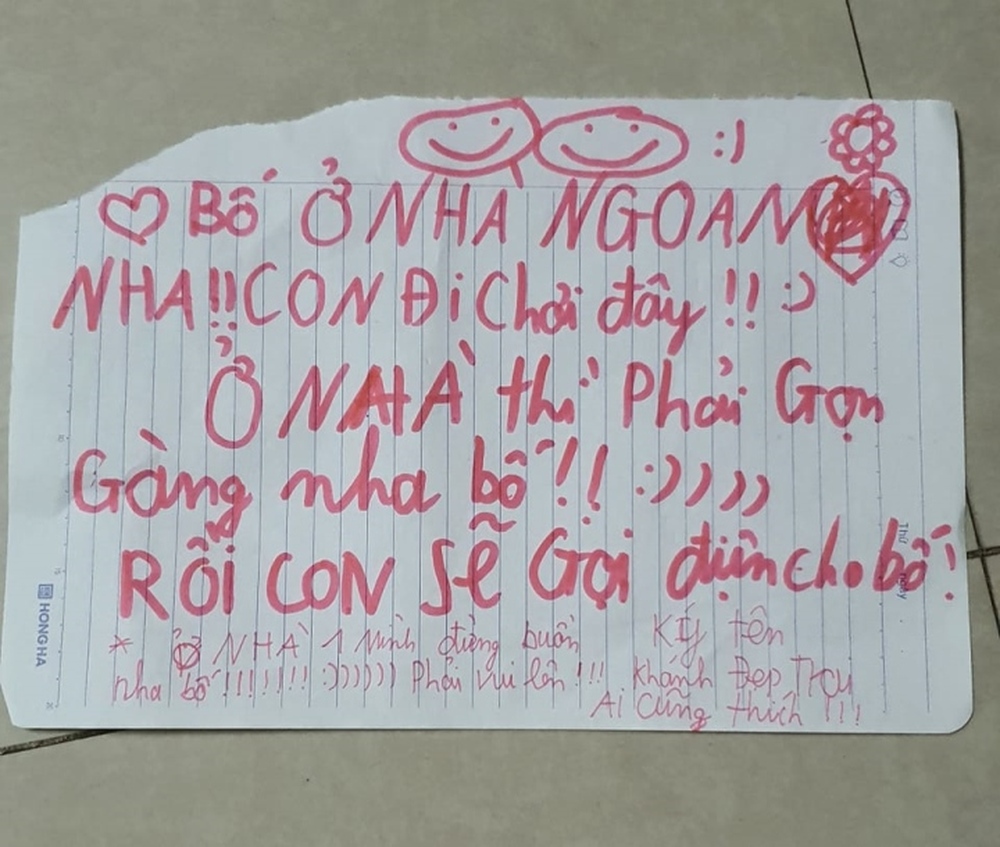 :)
Bố Ở NHA NGOAN
NHA!! CON Đi Chơi đây !! :)
Ở NHÀ thì Phải Gọn
Gàng nha bố !! :))))
RỒi CON Sẽ Gọi điện cho bố !
* Ở NHÀ 1 Mình đừng buồn
nha bố !!!!!!!! :)))))) Phải vui lên !!!
Ký tên
Khánh Đẹp Trai
Ai Cũng thích !!!
HONGHA
Thứ
ngày